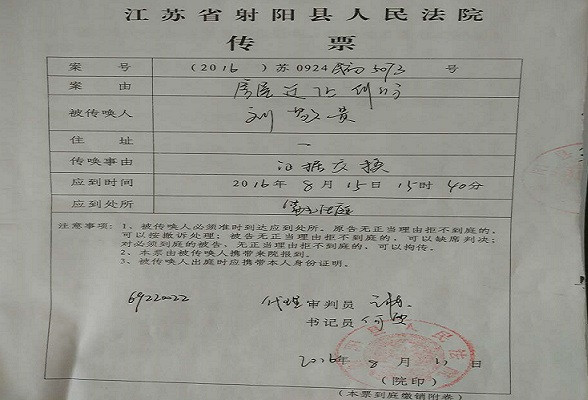 江苏省射阳县人民法院
传 票
案 号 (2016)苏0924民初5073号
案 由 房屋迁让纠纷
被传唤人 刘 贵
住 址 一
传唤事由 证据交换
应到时间 2016年8月15日15时40分
应到处所 法庭
注意事项:1、被传唤人必须准时到达应到处所。原告无正当理由拒不到庭的,
可以按撤诉处理;被告无正当理由拒不到庭的,可以缺席判决;
对必须到庭的被告,无正当理由拒不到庭的,可以拘传。
2、本票由被传唤人携带来院报到。
3、被传唤人出庭时应携带本人身份证明。
69220022 代理审判员
书记员 何
2016年8月11日
(院印)
(本票到庭缴销附卷)